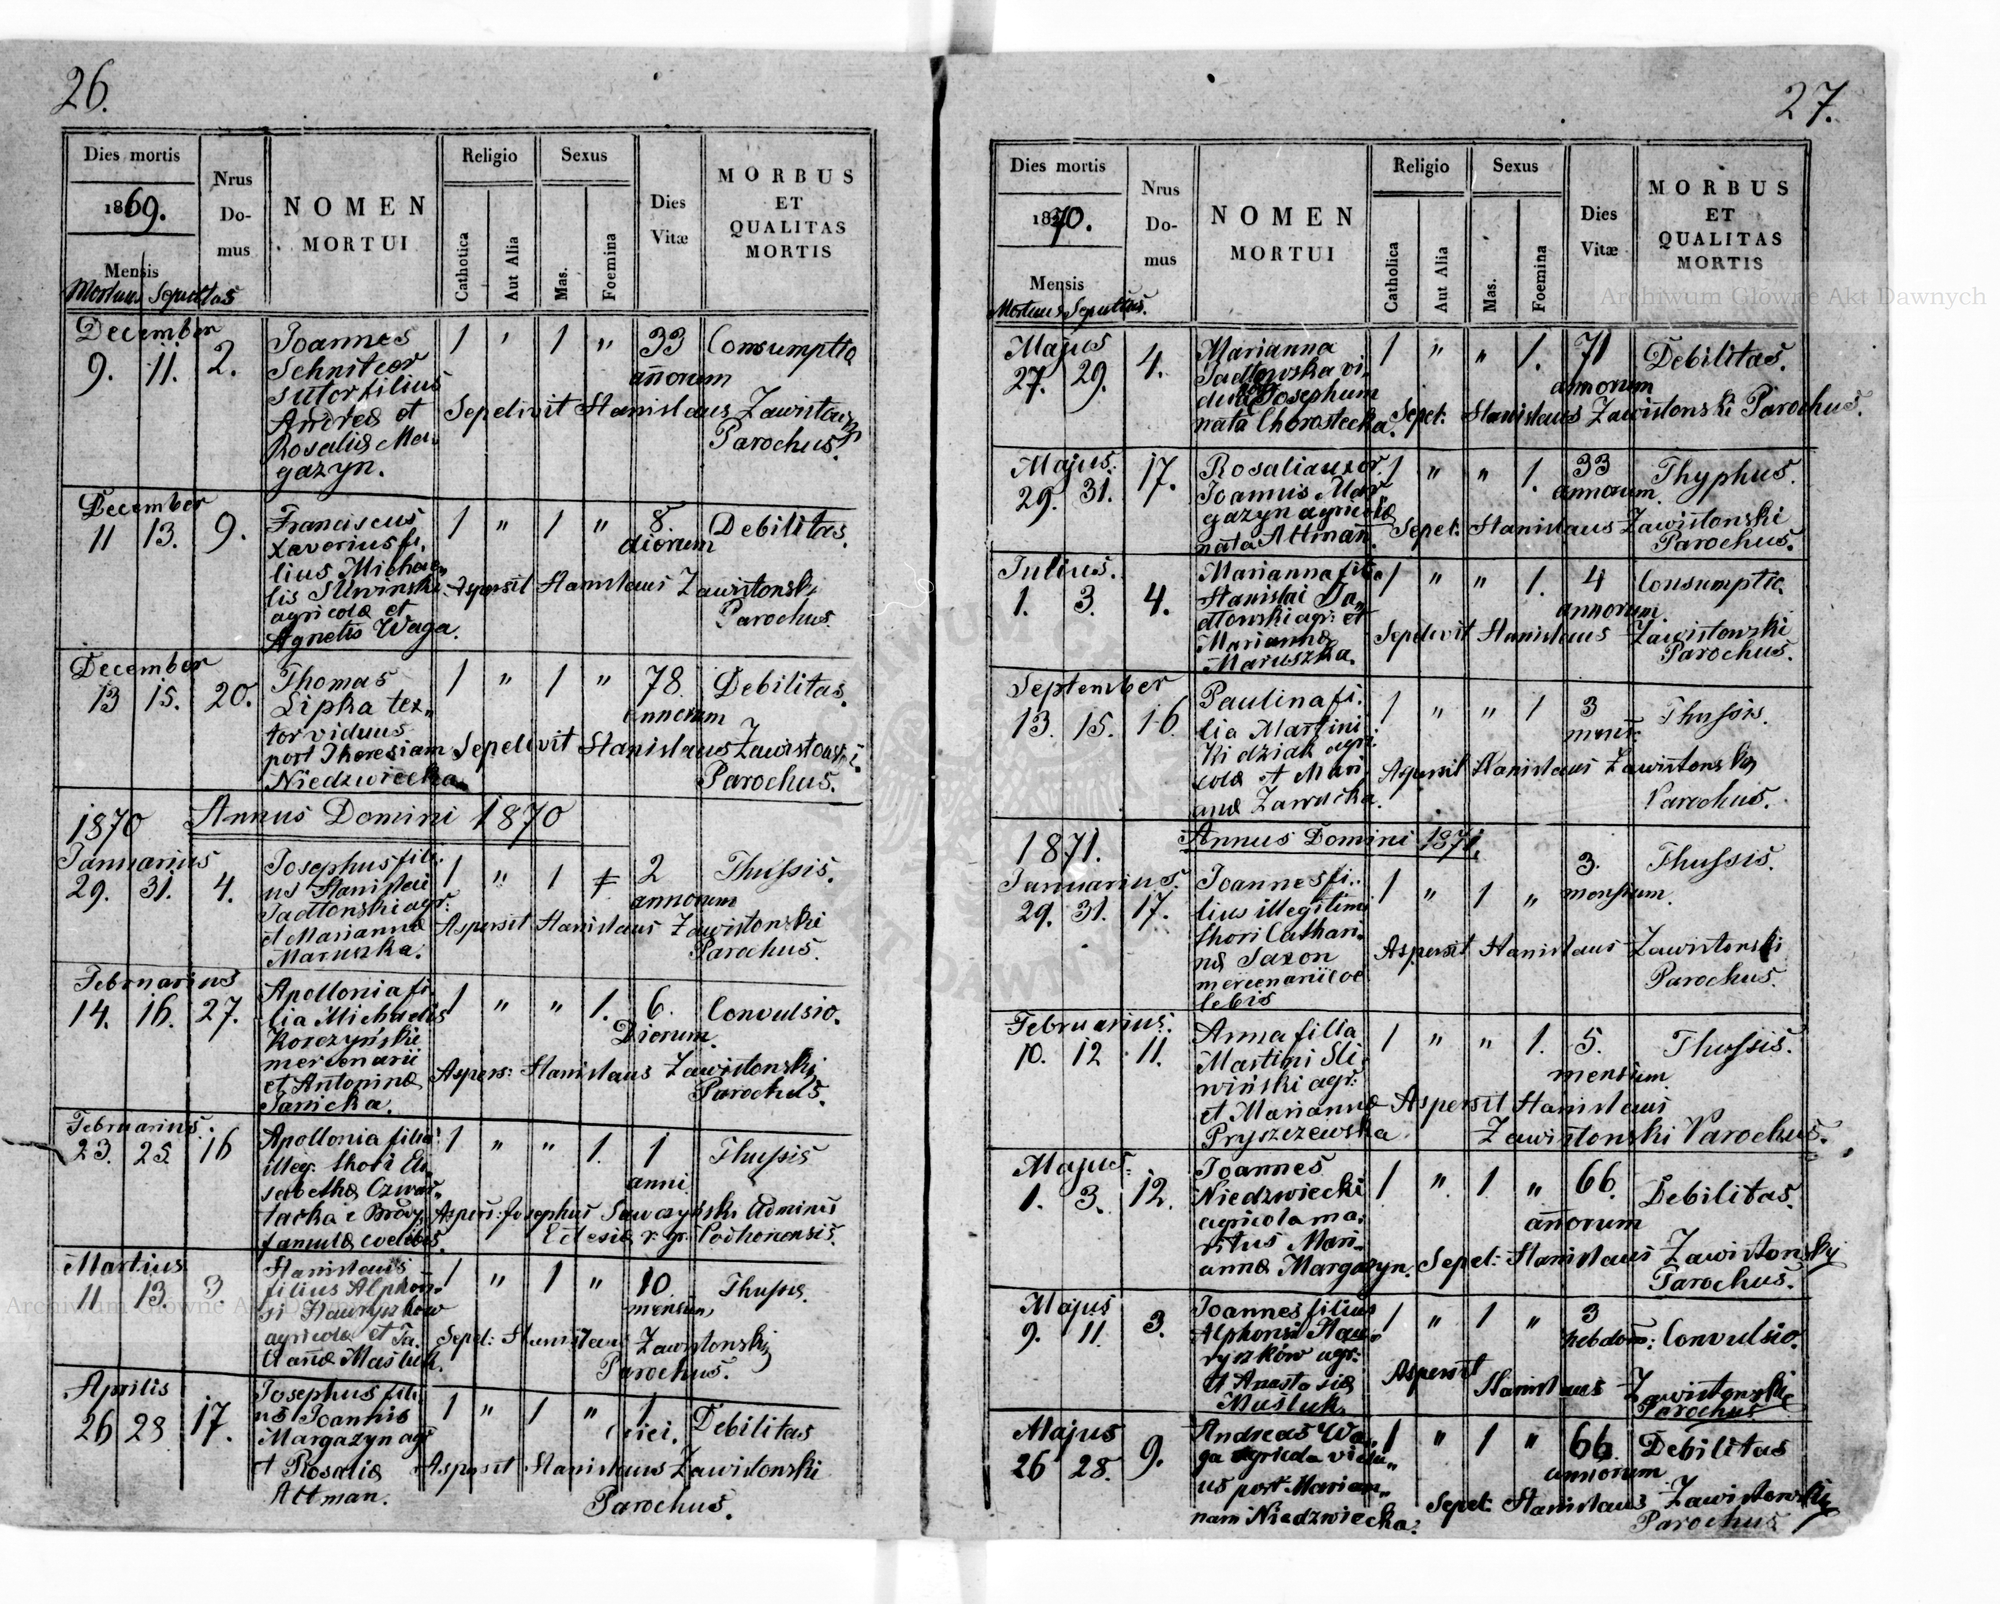 26.
Dies mortis
1869.
Mensis
Mortuus Sepultus
Nrus
Do-
mus
NOMEN
MORTUI
Religio
Cathotica
Aut Alia
Sexus
Mas.
Foemina
Dies
Vitæ
MORBUS
ET
QUALITAS
MORTIS
December
9. 11. 2.
Joannes
Schniteer
sutor filius
Andreæ et
Rosaliæ Mar
gazyn.
1 " 1 " 33
annorum
Consumptio
Sepelivit Stanislaus Zawistowski
Parochus.
December
11 13. 9.
Franciscus
Xaverius fi.
lius Michae
lis Sliwinski
agricolæ et
Agnetis Waga.
1 " 1 " 8.
dierum
Debilitas.
Aspersit Stanislaus Zawistonski
Parochus.
December
13 15. 20.
Thomas
Lipka tex„
tor viduus
post Theresiam
Niedzwiecka
1 " 1 " 78.
annorum
Debilitas.
Sepelivit Stanislaus Zawistonski
Parochus.
1870 Annus Domini 1870
Januarius
29. 31. 4.
Josephus fili„
us Stanislai
Jadlonski agr.
et Mariannæ
Maruszka.
1 " 1 2
annorum
Thussis.
Aspersit Stanislaus Zawistonski
Parochus.
Februarius
14. 16. 27.
Apollonia fi.
lia Michaelis
Korczyński
mercenarii
et Antoninæ
Janicka.
1 " " 1. 6.
Dierum.
Convulsio.
Aspers: Stanislaus Zawistonski
Parochus.
Februarius.
23. 25. 16
Apollonia filia
illeg. thori Eli
sabethæ Czwar„
tacka e Brody
famulæ coelibis.
1 " " 1. 1
anni
Thussis
Aspers: Josephus Sawczyński Adminis
Eclesiæ r. gr. Podhoricensis.
Martius
11 13. 3
Stanislaus
filius Alphon„
si Hawryszkow
agricolæ et
Masluk.
1 " 1 " 10.
mensium
Thussis.
Sepel: Stanislaus Zawistonski
Parochus.
Aprilis
26 28 17.
Josephus fili„
us Joannis
Margazyn agr
et Rosaliæ
Attman.
1 " 1 " 1
Debilitas
Aspersit Stanislaus Zawistonski
Parochus.
27.
Dies mortis
1870.
Mensis
Mortuus Sepultus.
Nrus
Do-
mus
NOMEN
MORTUI
Religio
Catholica
Aut Alia
Sexus
Mas.
Foemina
Dies
Vitæ
MORBUS
ET
QUALITAS
MORTIS
Majus
27. 29. 4.
Marianna
Jadlowska vi„
dua Josephum
nata Chorostecka.
1 " " 1. 71
annorum
Debilitas.
Sepel: Stanislaus Zawistonski Parochus.
Majus.
29. 31. 17.
Rosalia uxor
Joannis Mar„
gazyn agricolæ
nata Attman.
1 " " 1. 33
annorum.
Thyphus.
Sepel: Stanislaus Zawistonski
Parochus.
Julius.
1. 3. 4.
Marianna filia
Stanislai Ja„
dlowski agr: et
Mariannæ
Maruszka.
1 " " 1. 4
annorum.
Consumptio.
Sepelivit Stanislaus Zawistonski
Parochus.
September
13. 15. 16
Paulina fi.
lia Martini
Kidziak agri
colæ et Mari
annæ
1 " " 1 3
Thussis.
Aspersit Stanislaus Zawistonski
Parochus.
1871. Annus Domini 1871.
Januarius.
29. 31. 17.
Joannes fi„
lius illegitim
thori Cathari„
næ Saxon
mercenarii coe
lebis
1 " 1 " 3.
mensium.
Thussis.
Aspersit Stanislaus Zawistonski
Parochus.
Februarius.
10. 12 11.
Anna filia
Martini Sli„
wiński agr:
et Mariannæ
Pryszczewska
1 " " 1. 5.
mensium
Thussis.
Aspersit Stanislaus
Zawistonski Parochus.
Majus.
1. 3. 12.
Joannes
Niedzwiecki
agricola ma„
ritus Mari„
annæ Margazyn.
1 " 1 " 66.
annorum
Debilitas.
Sepel: Stanislaus Zawistonsky
Parochus.
Majus
9. 11. 3.
Joannes filius
Alphonsi Haw„
ryszków agr:
et Anastasiæ
Masluk.
1 " 1 " 3
hebdom: Convulsio.
Aspersit
Stanislaus Zawistonski
Parochus
Majus
26 28. 9.
Andreas Wa„
ga agricola vidu„
us post Marian„
nam Niedzwiecka.
1 " 1 " 66
annorum
Debilitas
Sepel: Stanislaus Zawistowski
Parochus
Archiwum Główne Akt Dawnych
Archiwum Główne Akt Dawnych